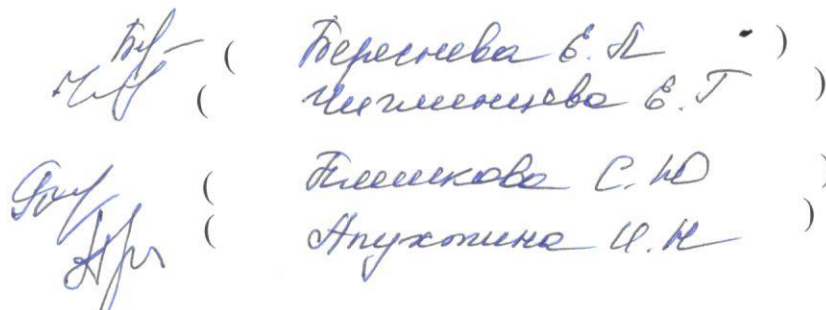 ( Береснева Е. П )
( Чигменцева Е. Г )
( Плешкова С. Ю )
( Апухтина И. Н )